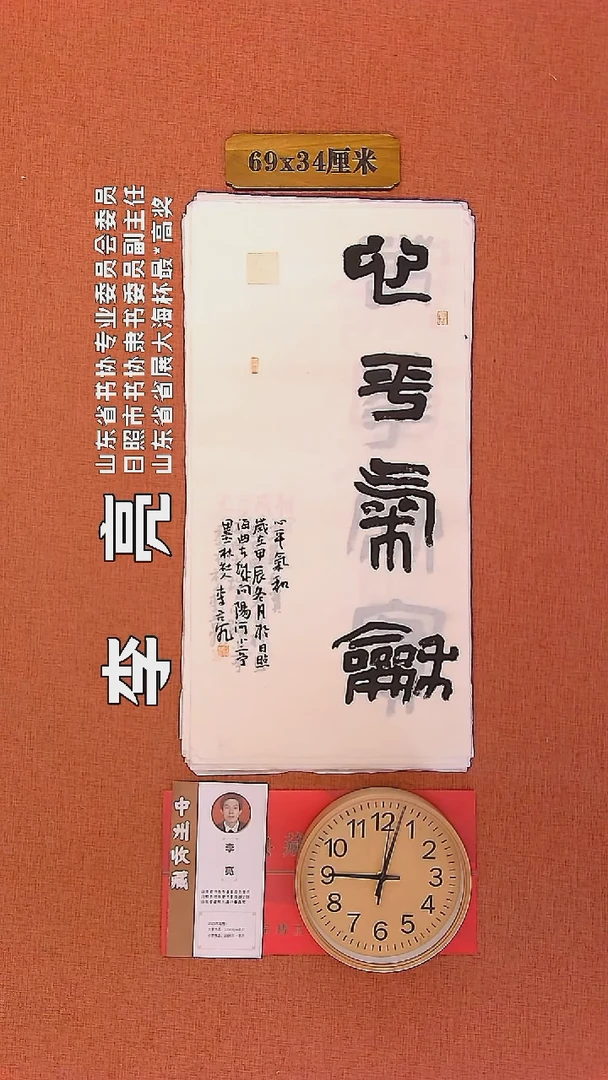 69x34厘米
山东省书协专业委员会委员
日照市书协隶书委员副主任
山东省省展大海杯最*高奖
李亮
心平氣龢
心平氣和
歲在甲辰冬月於日照
海曲古城向陽河小亭
墨林於人 李亮
李亮
12
1
2
3
4
5
6
7
8
9
10
11